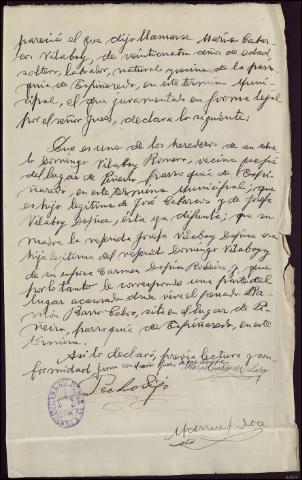 pareció el que dijo llamarse María Cabar-
cos Vilaboy, de veinticuatro años de edad
soltero, labrador, natural y vecino de la parro-
quia de Espiñaredo, en este término muni-
cipal, el que juramentado en forma legal
por el señor Juez, declara lo siguiente:
Que es uno de los herederos de su abue-
lo Domingo Vilaboy Romero, vecino que fué
del lugar de Piñeiro, parroquia de Espi-
ñaredo, en este término municipal; que
es hijo legítimo de José Cabarcos y de Josefa
Vilaboy, esta ya difunta; que su
madre la referida Josefa Vilaboy era
hija legítima del referido Domingo Vilaboy y
de su esposa Carmen y que
por lo tanto le corresponde una parte del
lugar acasarado donde vive el penado Ra-
món Barro Cabo, sito en el lugar de Pi-
ñeiro, parroquia de Espiñaredo, en este
término.
Así lo declaró, previa lectura y con-
formidad, firma con
Pecho
Manuel